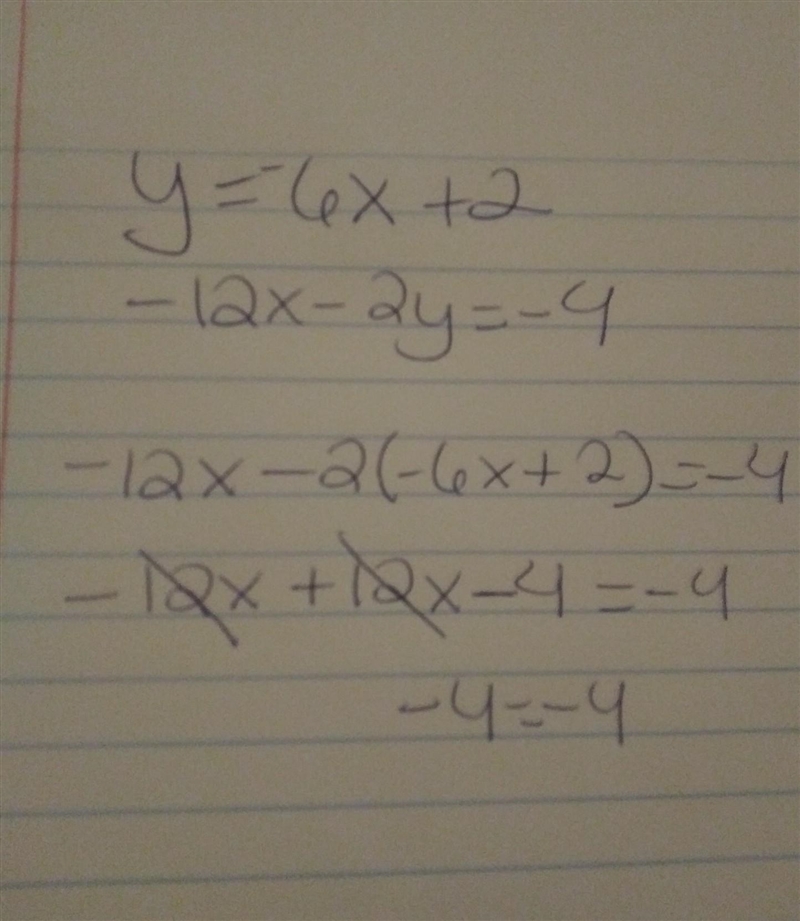 y=-6x+2
-12x-2y=-4
-12x-2(-6x+2)=-4
-12x+12x-4=-4
-4=-4